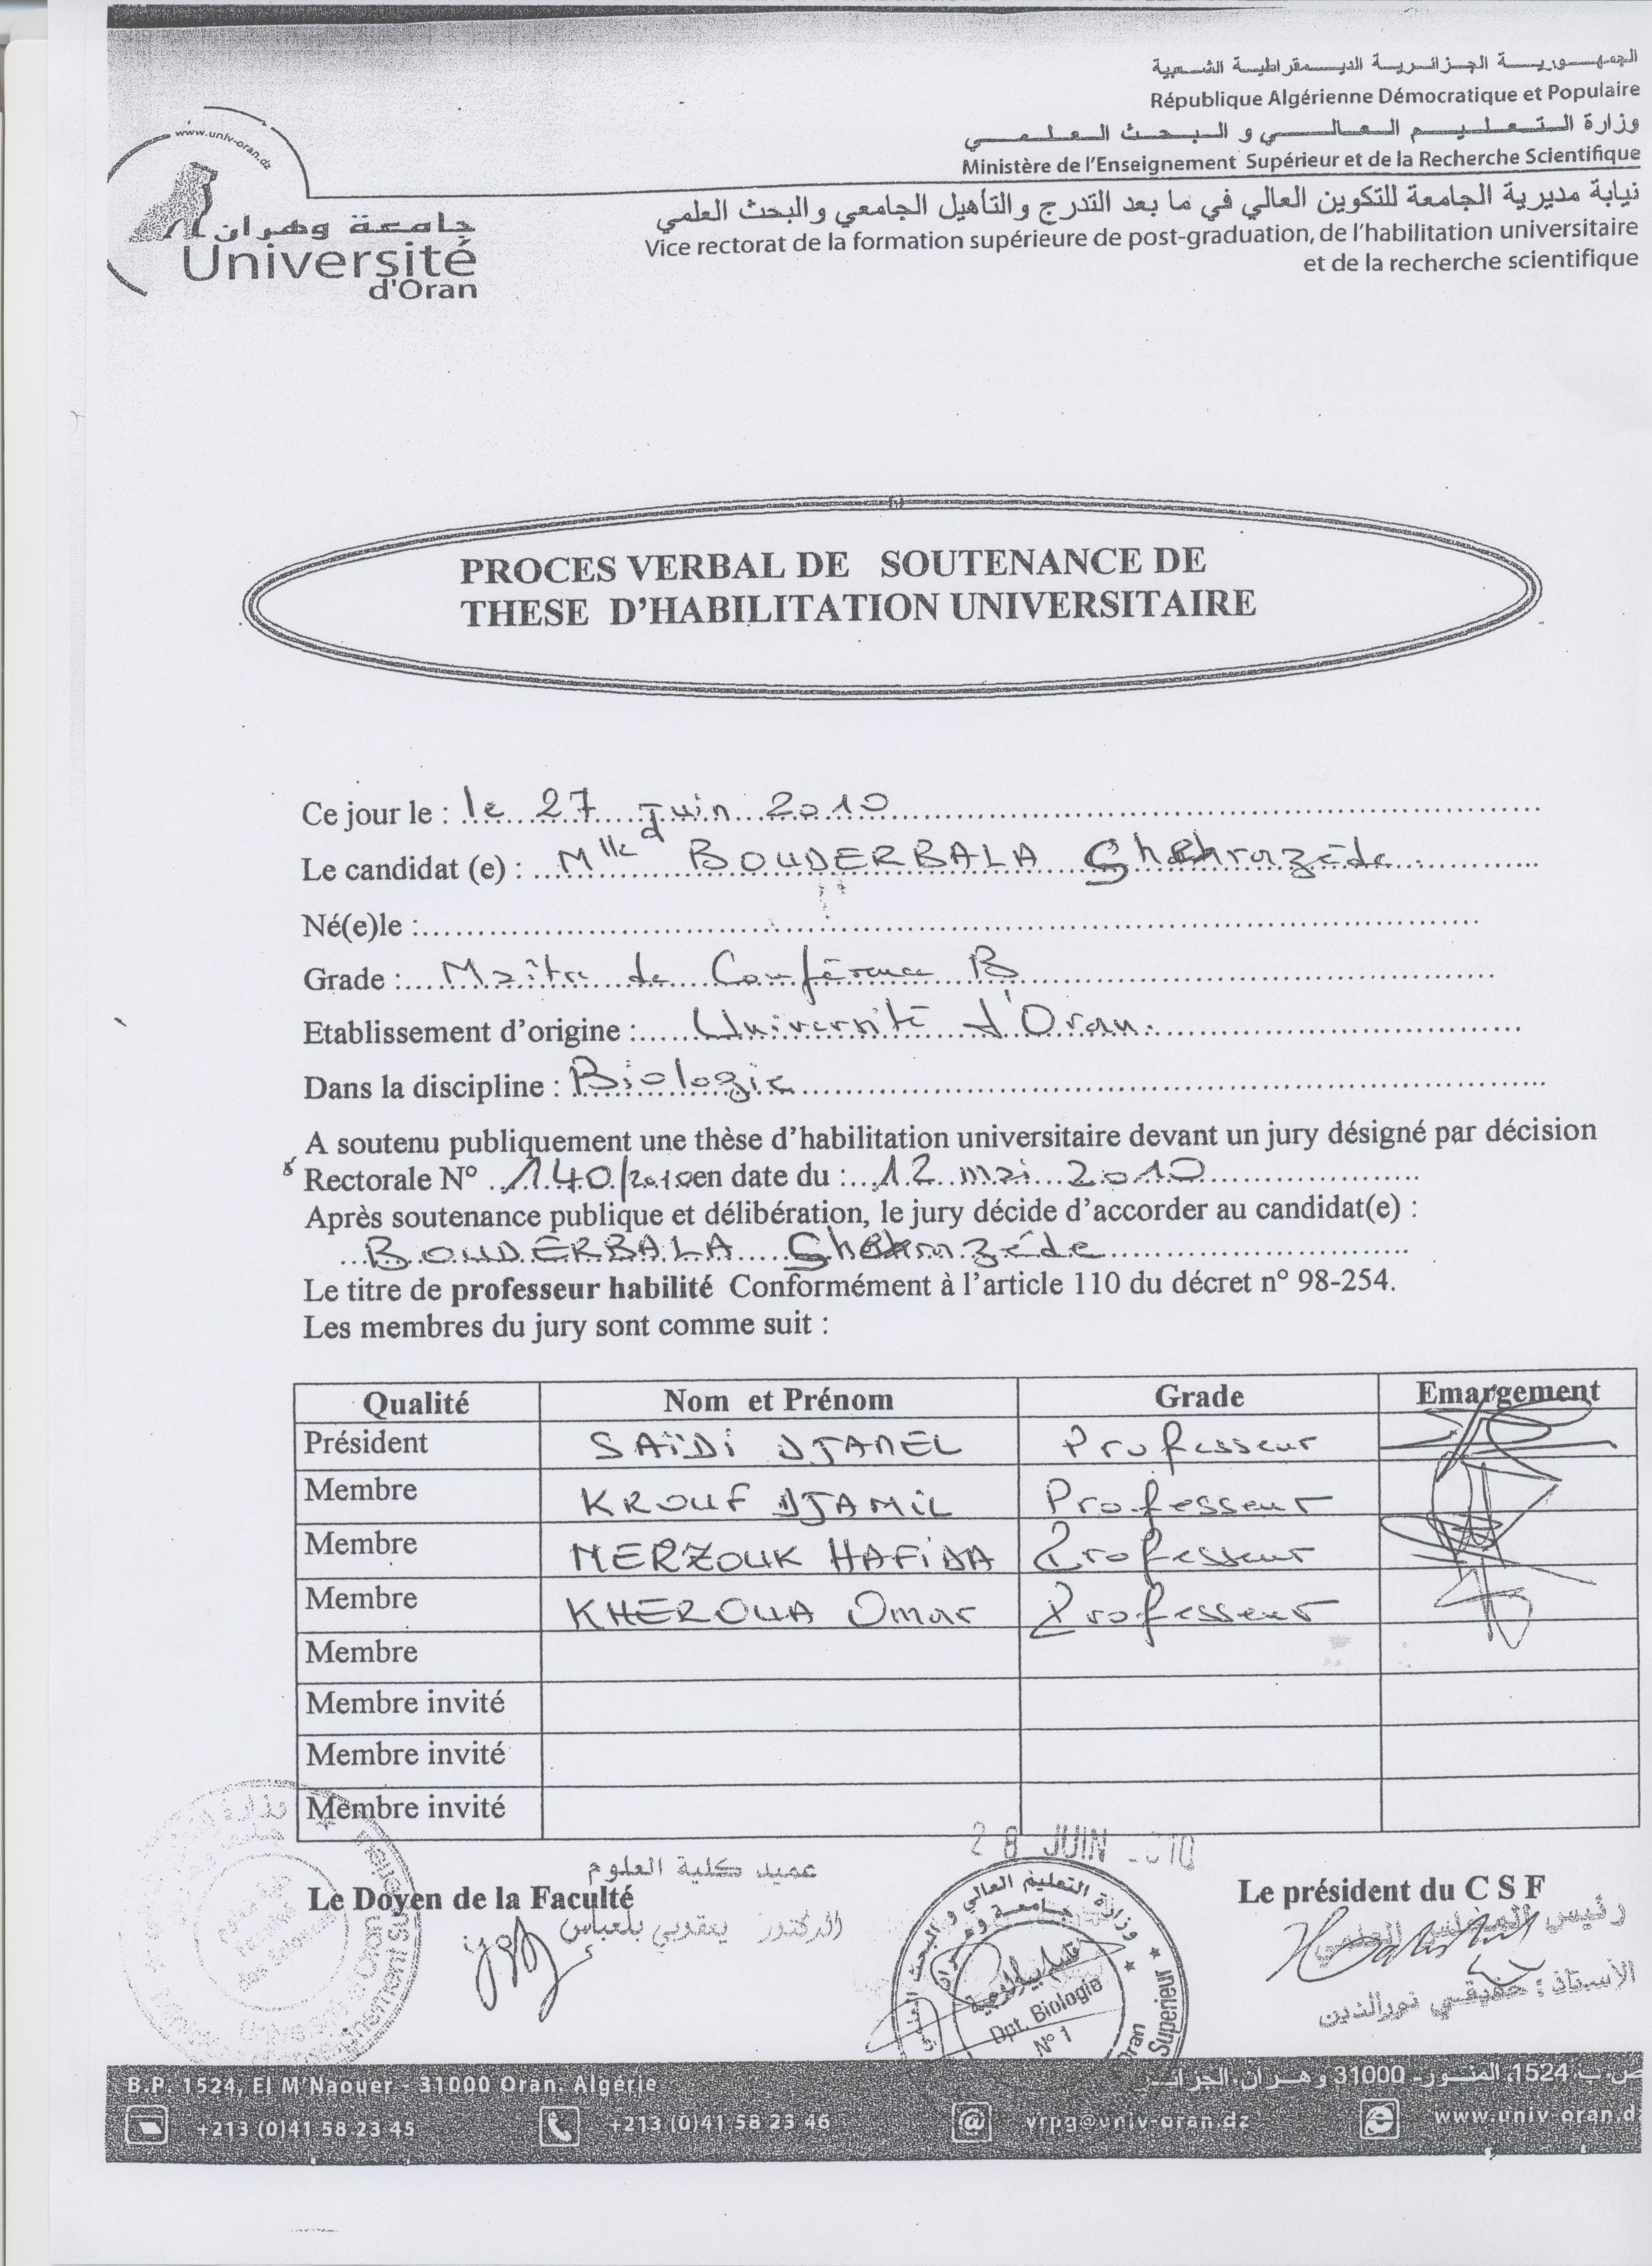 الجمهورية الجزائرية الديمقراطية الشعبية
République Algérienne Démocratique et Populaire
وزارة التعليم العالي و البحث العلمي
Ministère de l'Enseignement Supérieur et de la Recherche Scientifique
نيابة مديرية الجامعة للتكوين العالي في ما بعد التدرج والتأهيل الجامعي والبحث العلمي
Vice rectorat de la formation supérieure de post-graduation, de l'habilitation universitaire
et de la recherche scientifique
www.univ-oran.dz
جامعة وهران
Université
d'Oran
PROCES VERBAL DE SOUTENANCE DE
THESE D'HABILITATION UNIVERSITAIRE
Ce jour le : le 27 Juin 2010
Le candidat (e) : Mlle BOUDERBALA
Né(e)le :
Grade : Maître de Conférence B
Etablissement d'origine : Université d'Oran.
Dans la discipline : Biologie
A soutenu publiquement une thèse d'habilitation universitaire devant un jury désigné par décision
Rectorale N° 140/2010 en date du : 12 mai 2010
Après soutenance publique et délibération, le jury décide d'accorder au candidat(e) :
BOUDERBALA
Le titre de professeur habilité Conformément à l'article 110 du décret n° 98-254.
Les membres du jury sont comme suit :
Qualité Nom et Prénom Grade Emargement
Président SAÏDI DJAMEL Professeur
Membre KROUF DJAMIL Professeur
Membre MERZOUK HAFIDA Professeur
Membre KHEROUA Omar Professeur
Membre
Membre invité
Membre invité
Membre invité
28 JUIN 2010
عميد كلية العلوم
Le Doyen de la Faculté
الدكتور يعقوبي بلعباس
Le président du C S F
رئيس المجلس العلمي
الأستاذ : حقيقي نورالدين
وزارة التعليم العالي و البحث العلمي
جامعة وهران
قسم بيولوجية
Dpt. Biologie
N° 1
Oran
Superieur
B.P. 1524, El M'Naouer - 31000 Oran. Algérie
ص.ب 1524، المنور- 31000 وهران. الجزائر
+213 (0)41 58 23 45
+213 (0)41 58 23 46
vrpg@univ-oran.dz
www.univ-oran.d